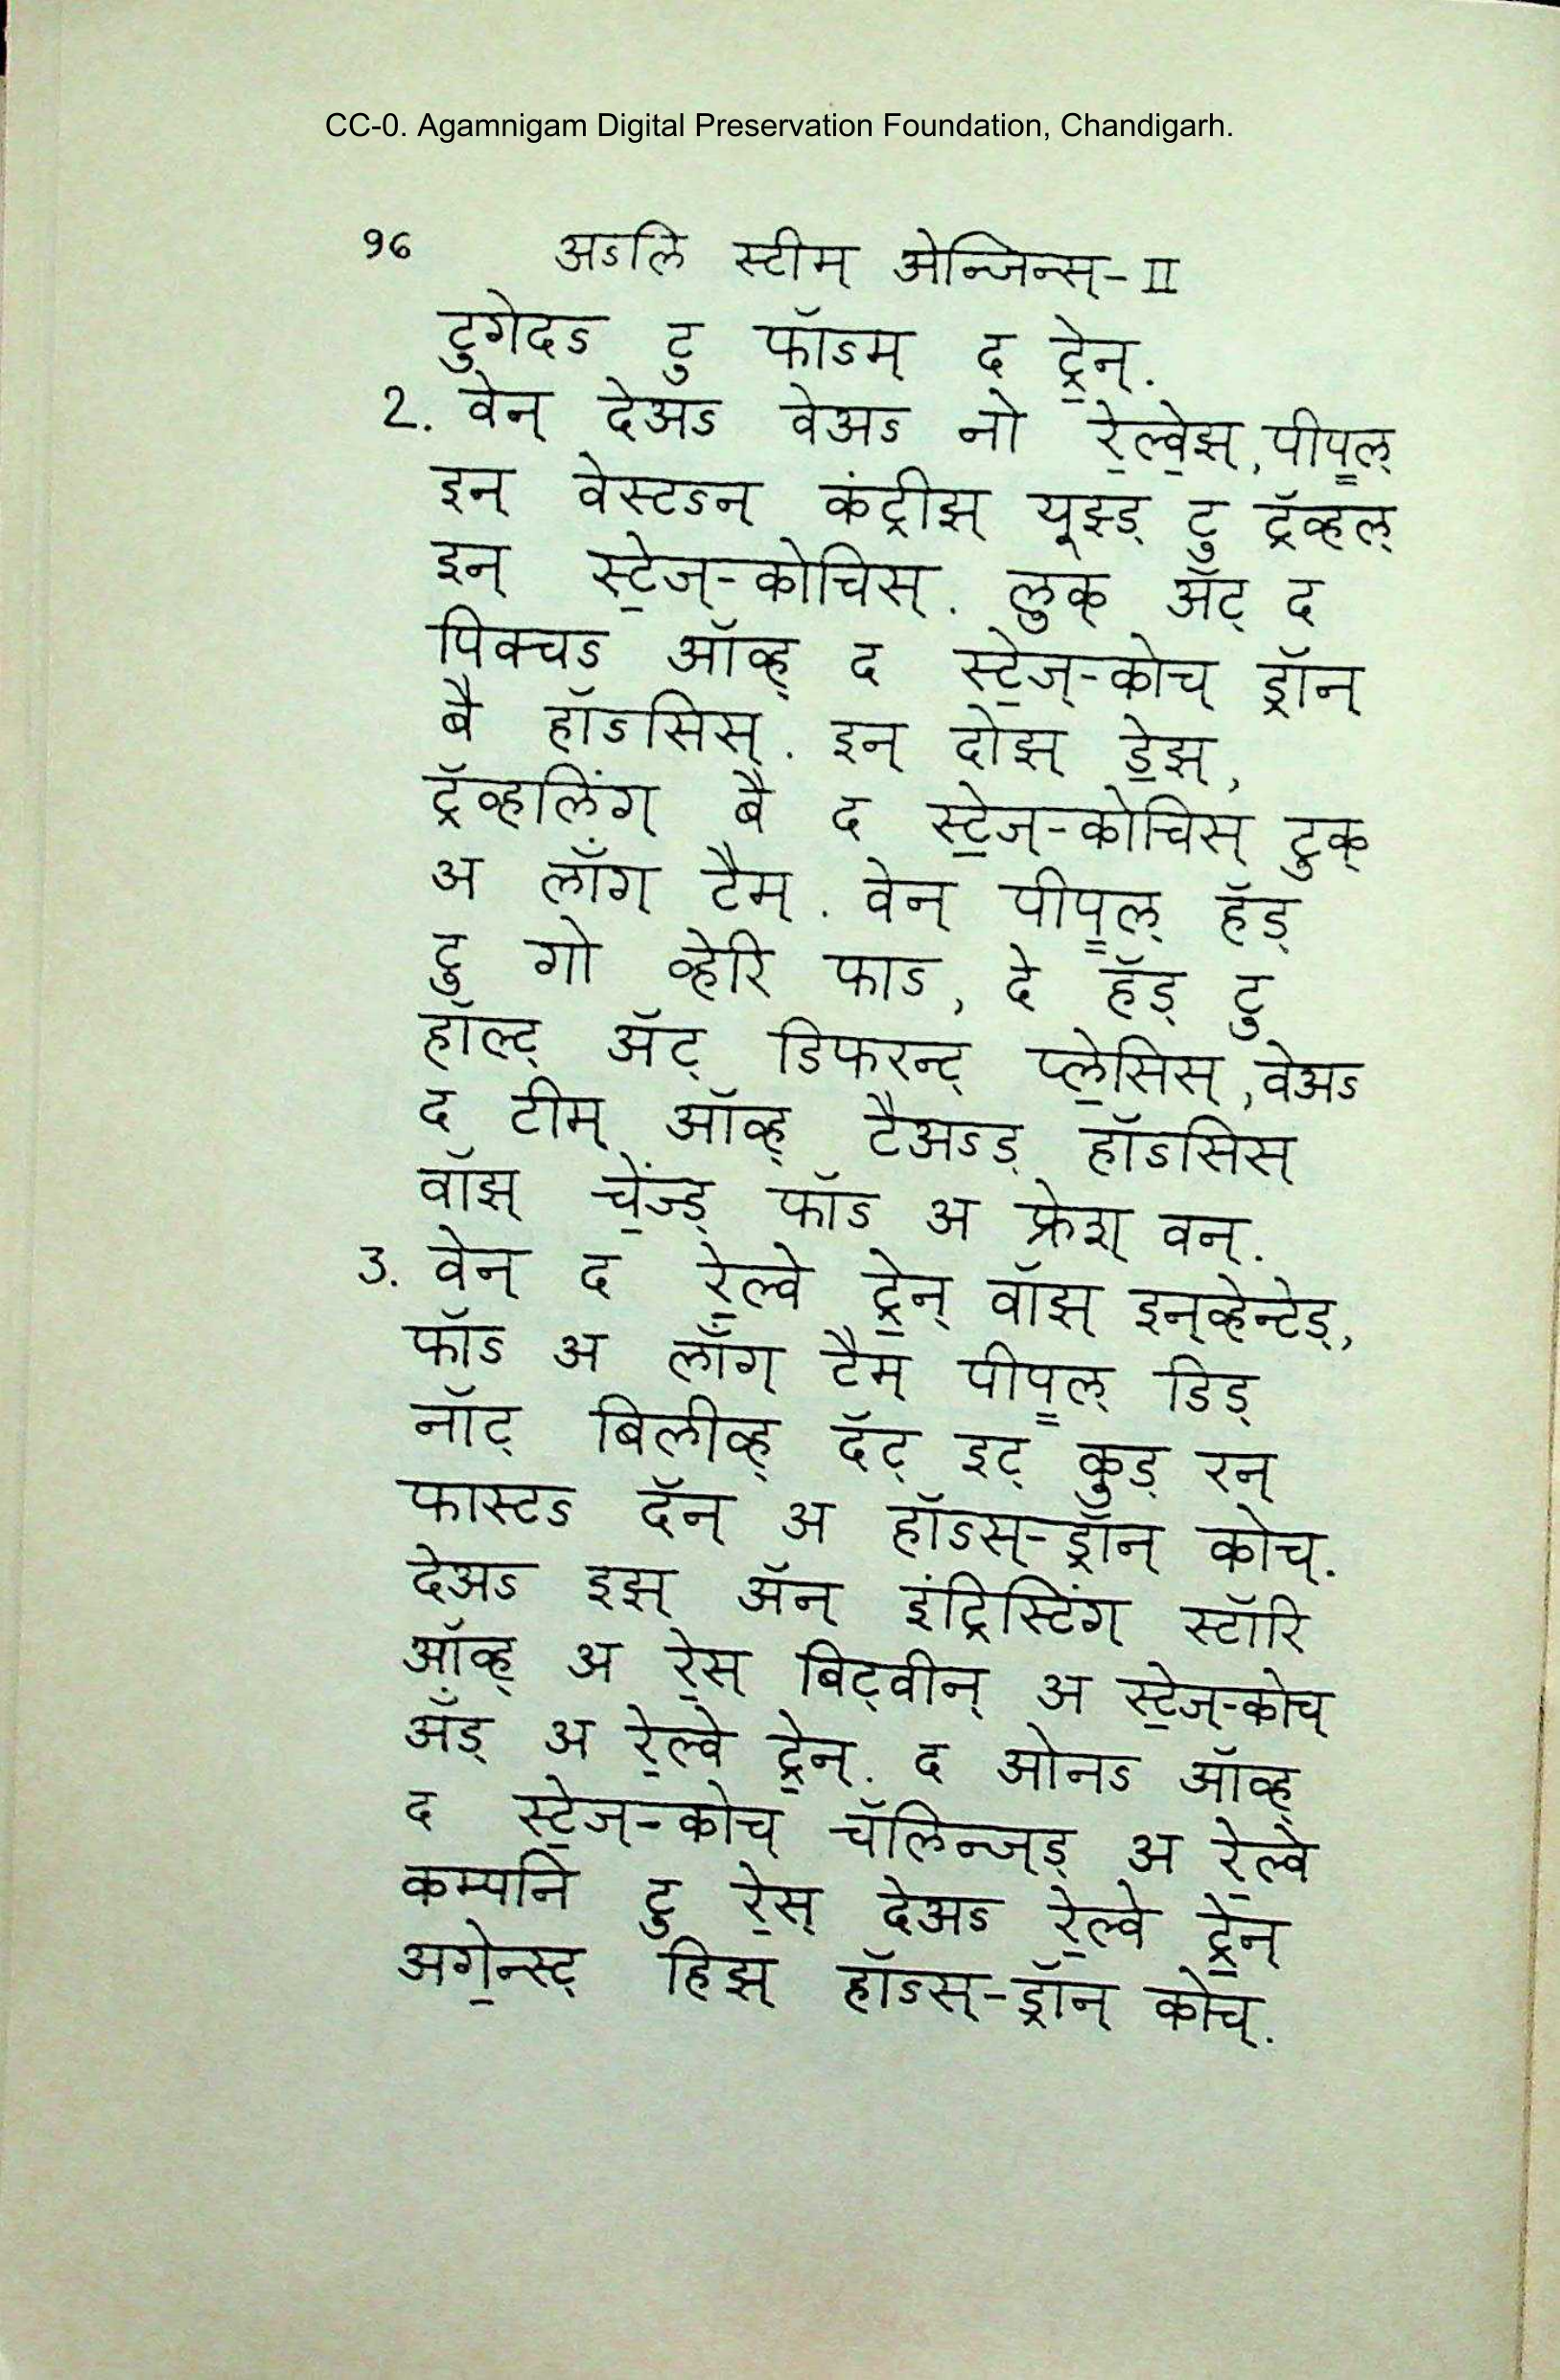 CC-0. Agamnigam Digital Preservation Foundation, Chandigarh.
96 अऽलि स्टीम् अेन्जिन्स्-II
टुगेदऽ टु फॉऽम् द ट्रे॒न्.
2. वेन् देअऽ वेअऽ नो रे॒ल्वे॒झ्, पीप॒ल्
इन् वेस्टऽन् कंट्रीझ् यूझ्ड् टु ट्रॅव्हल्
इन् स्टे॒ज्-कोचिस्. लुक् अ‍ॅट् द
पिक्चऽ ऑव्ह् द स्टे॒ज्-कोच् ड्रॉन्
बै हॉऽसिस्. इन् दोझ् डे॒झ्,
ट्रॅव्हलिंग् बै द स्टे॒ज्-कोचिस् टुक्
अ लॉंग् टैम्. वेन् पीप॒ल् हॅड्
टु गो व्हेरि फाऽ, दे हॅड् टु
हॉल्ट् अ‍ॅट् डिफरन्ट् प्ले॒सिस्, वेअऽ
द टीम् ऑव्ह् टैअऽड् हॉऽसिस्
वॉझ् चें॒ज्ड् फॉऽ अ फ्रेश् वन्.
3. वेन् द रे॒ल्वे ट्रे॒न् वॉझ् इन्व्हेन्टेड्,
फॉऽ अ लॉंग् टैम् पीप॒ल् डिड्
नॉट् बिलीव्ह् दॅट् इट् कुड् रन्
फास्टऽ दॅन् अ हॉऽस्-ड्रॉन् कोच्.
देअऽ इझ् अ‍ॅन् इंट्रिस्टिंग् स्टॉरि
ऑव्ह् अ रे॒स् बिट्वीन् अ स्टे॒ज्-कोच्
अ‍ॅंड् अ रे॒ल्वे ट्रे॒न्. द ओनऽ ऑव्ह्
द स्टे॒ज्-कोच् चॅलिन्ज्ड् अ रे॒ल्वे
कम्पनि टु रे॒स् देअऽ रे॒ल्वे ट्रे॒न्
अगे॒न्स्ट् हिझ् हॉऽस्-ड्रॉन् कोच्.